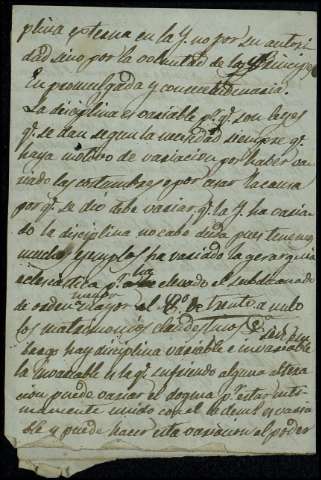 plina externa en la Y. no por su autori
dad sino por la voluntad de los Principes
En promulgada y consuetudinaria.
La disciplina es variable p.r q.e son leyes
q.e se dan segun la necesidad siempre q.e
haya motivo de variacion por haber va
riado las costumbres o por cesar la causa
por q.e se dio debe variar q.e la Y. ha varia
do la disciplina no cabe duda pues tenemos
muchos ejemplos ha variado la gerarquia
eclesiastica p.r ha elevado el subdiaconado
de orden menor a mayor el C. de Trento anulo
los matrimonios clandestinos
bargo hay disciplina variable e invariable
la invariable es la q.e sufriendo alguna altera
cion puede variar el dogma p.r estar inti
mamente unido con el lo demas es varia
ble y puede hacer esta variacion el poder